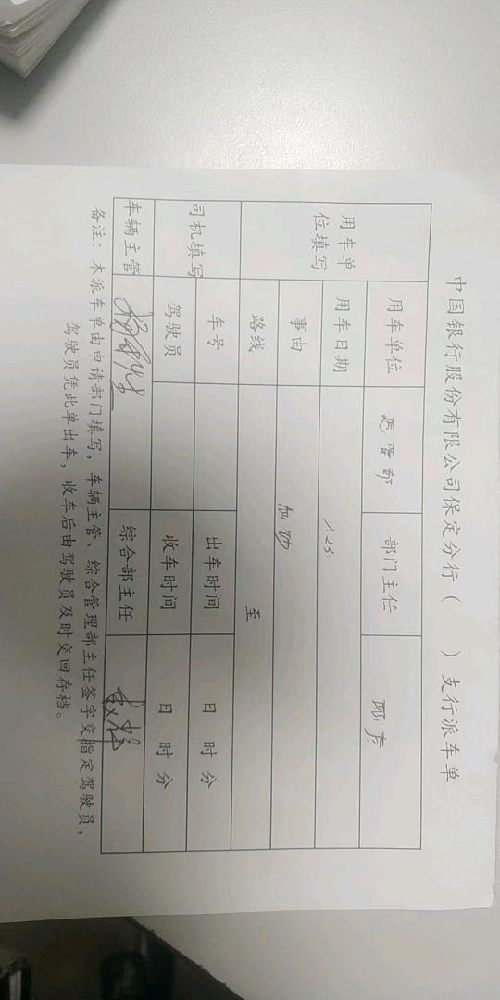 中国银行股份有限公司保定分行（　　）支行派车单
用车单位填写 用车单位 运营部 部门主任
用车日期 1.25
事由 加钞
路线 至
司机填写 车号 出车时间 日 时 分
驾驶员 收车时间 日 时 分
车辆主管 综合部主任
备注：本派车单由申请部门填写，车辆主管、综合管理部主任签字交指定驾驶员，
驾驶员凭此单出车，收车后由驾驶员及时交回存档。